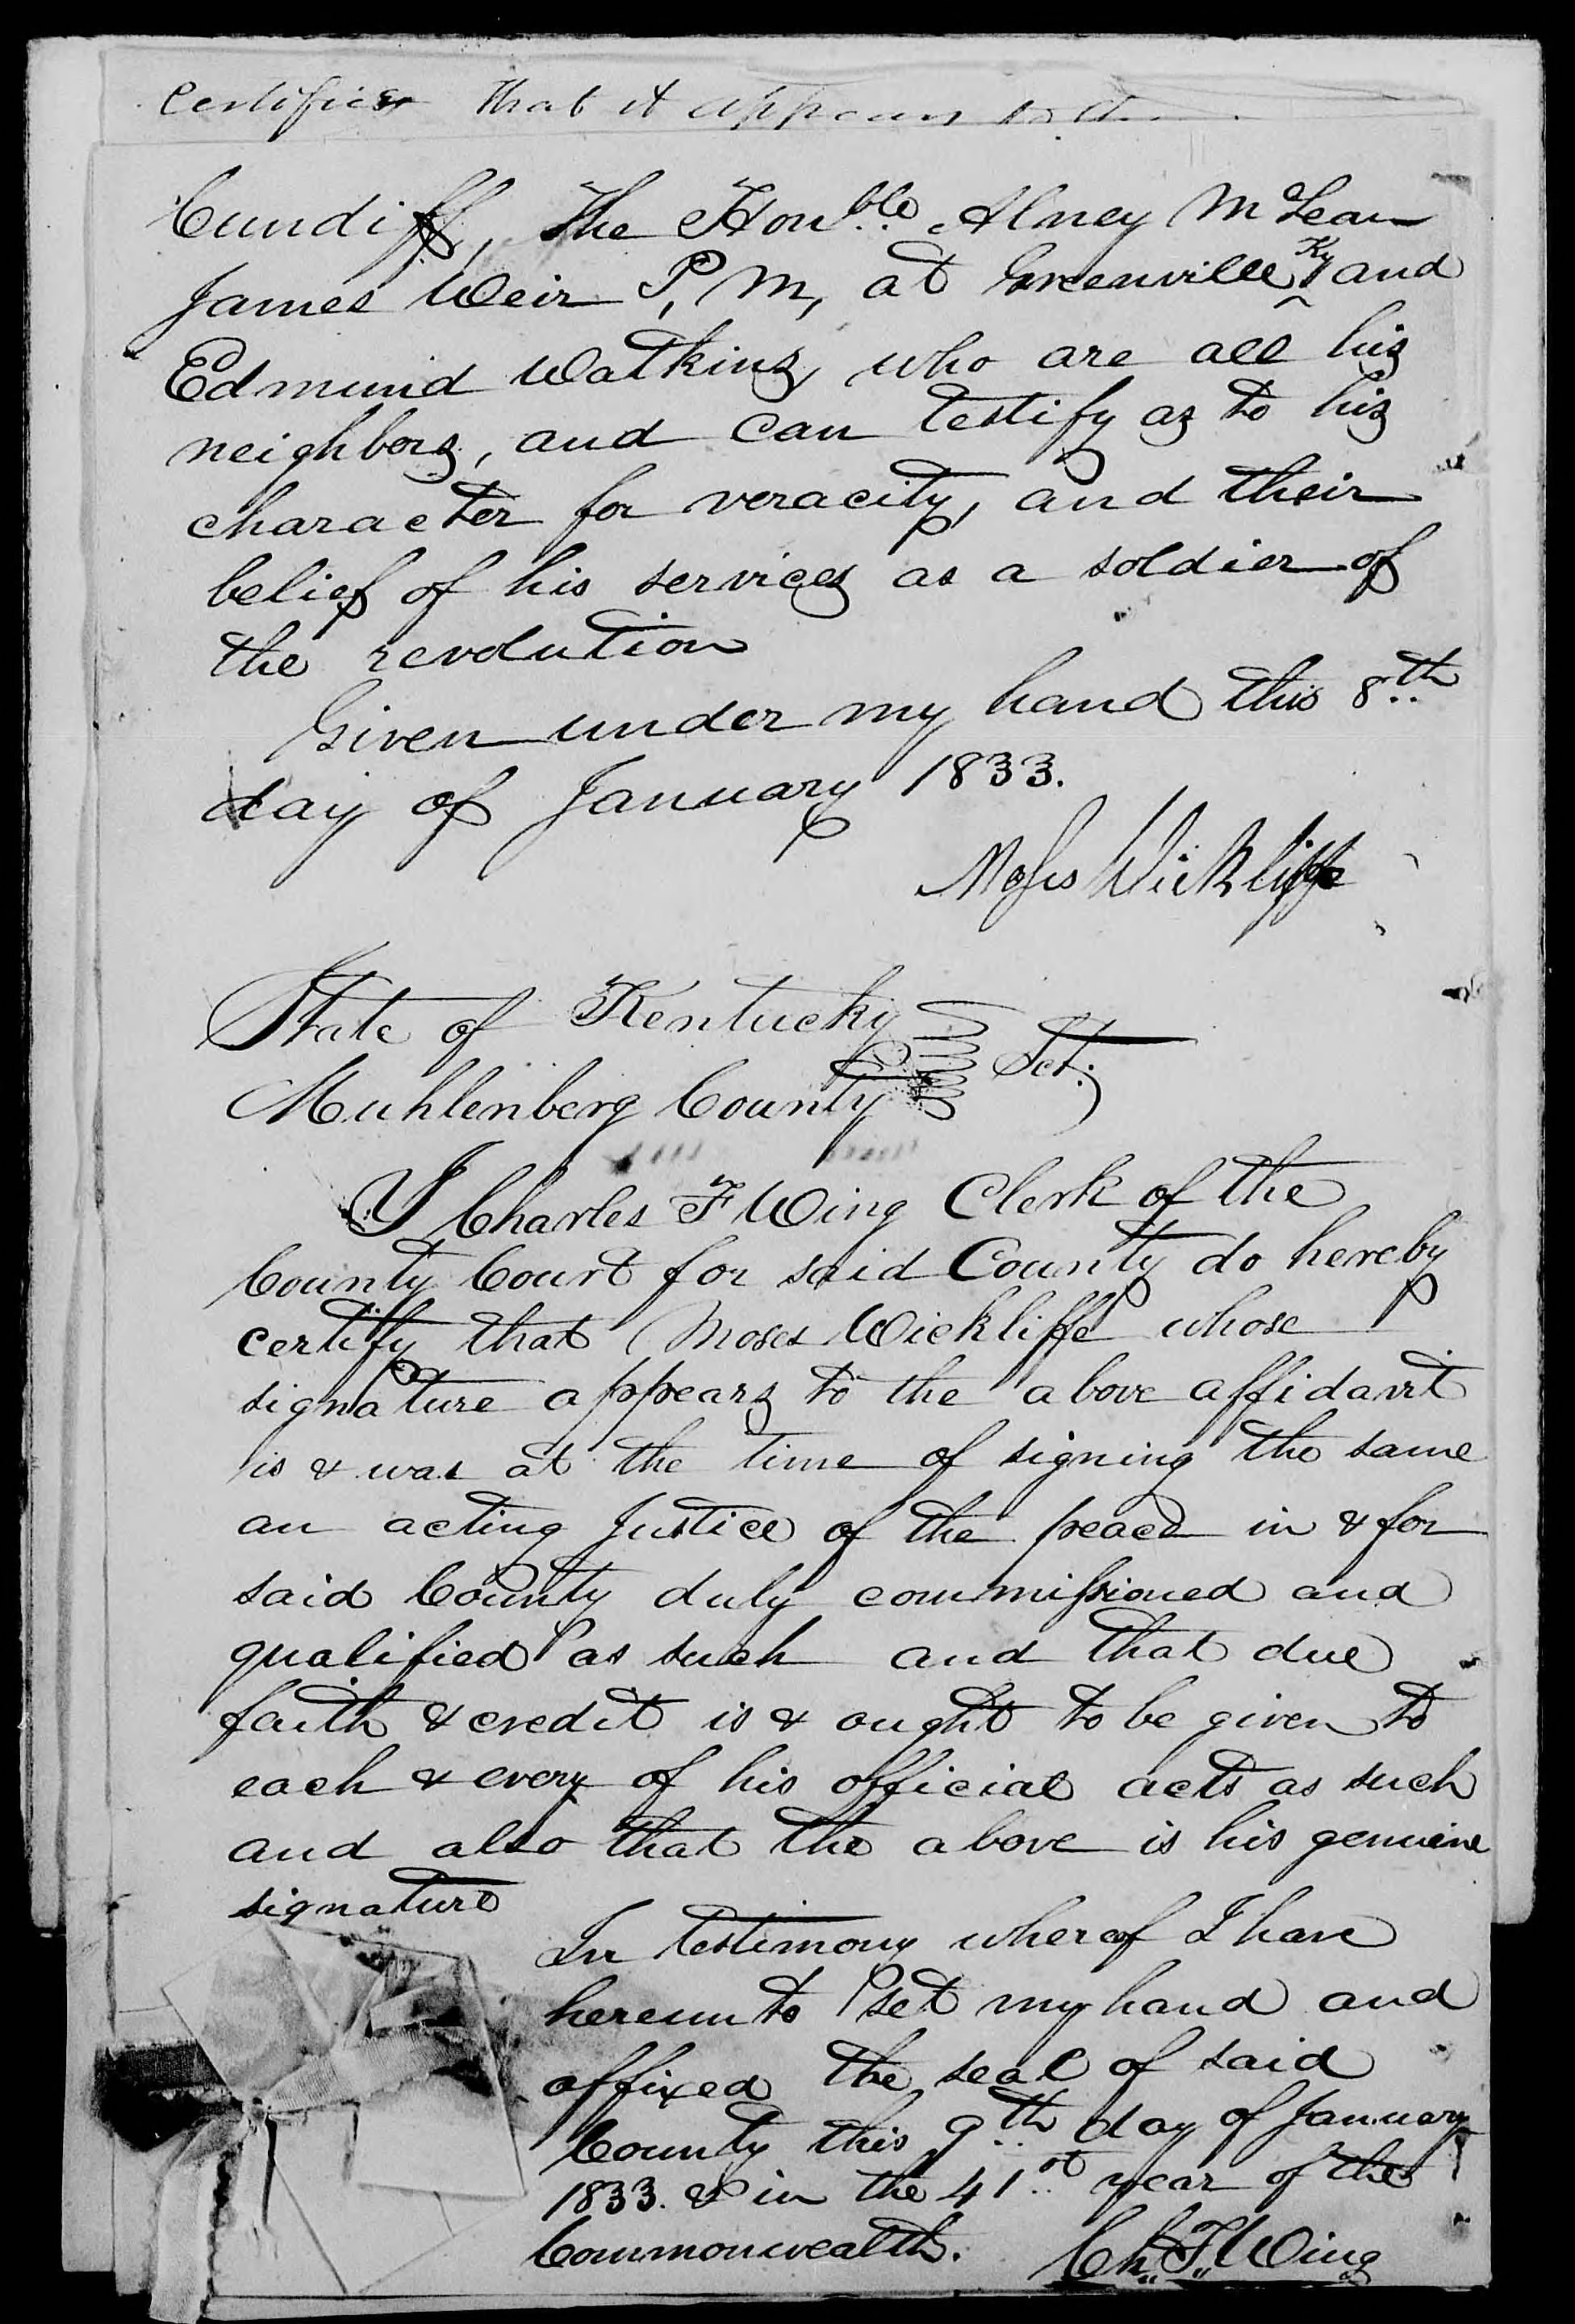 Certifies that it appears to
Cundiff, the Honble. Alney McLean
James Weir P, M, at Greenville Ky and
Edmund Watkins, who are all his
neighbors, and can testify as to his
character for veracity, and their
belief of his services as a soldier of
the revolution
Given under my hand this 8th
day of January 1833.
Moses Wickliffe
State of Kentucky
Muhlenberg County Sct.
I Charles F Wing Clerk of the
County Court for said County do hereby
certify that Moses Wickliffe whose
signature appears to the above affidavit
is & was at the time of signing the same
an acting Justice of the peace in & for
said County duly commissioned and
qualified as such and that due
faith & credit is & ought to be given to
each & every of his official acts as such
and also that the above is his genuine
signature
In testimony wherof I have
hereunto set my hand and
affixed the seal of said
County this 9th day of January
1833. & in the 41st year of the
Commonwealth. Ch. F. Wing